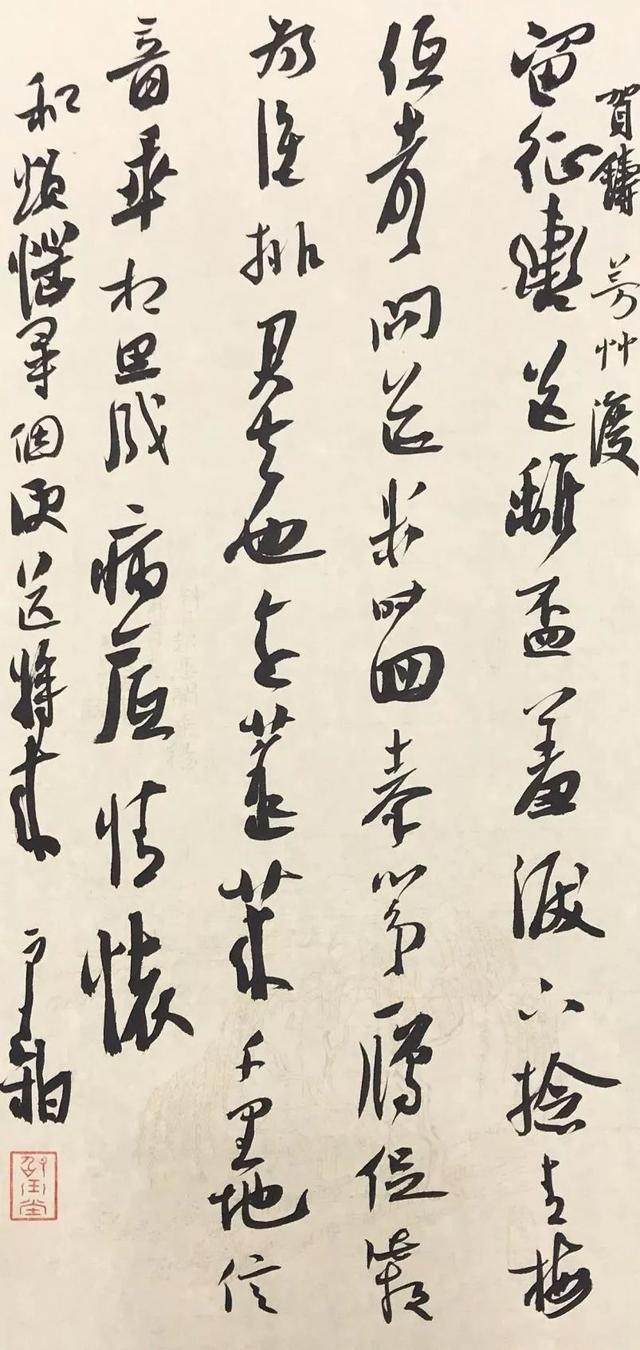 賀鑄 芳艸渡
留征轡送離盃羞淚下捻青梅
低聲問道幾時回秦箏鴈促此夜
為誰排君去也遠蓬萊千里地信
音乖相思成病底情懷
和煩惱尋個便送將來